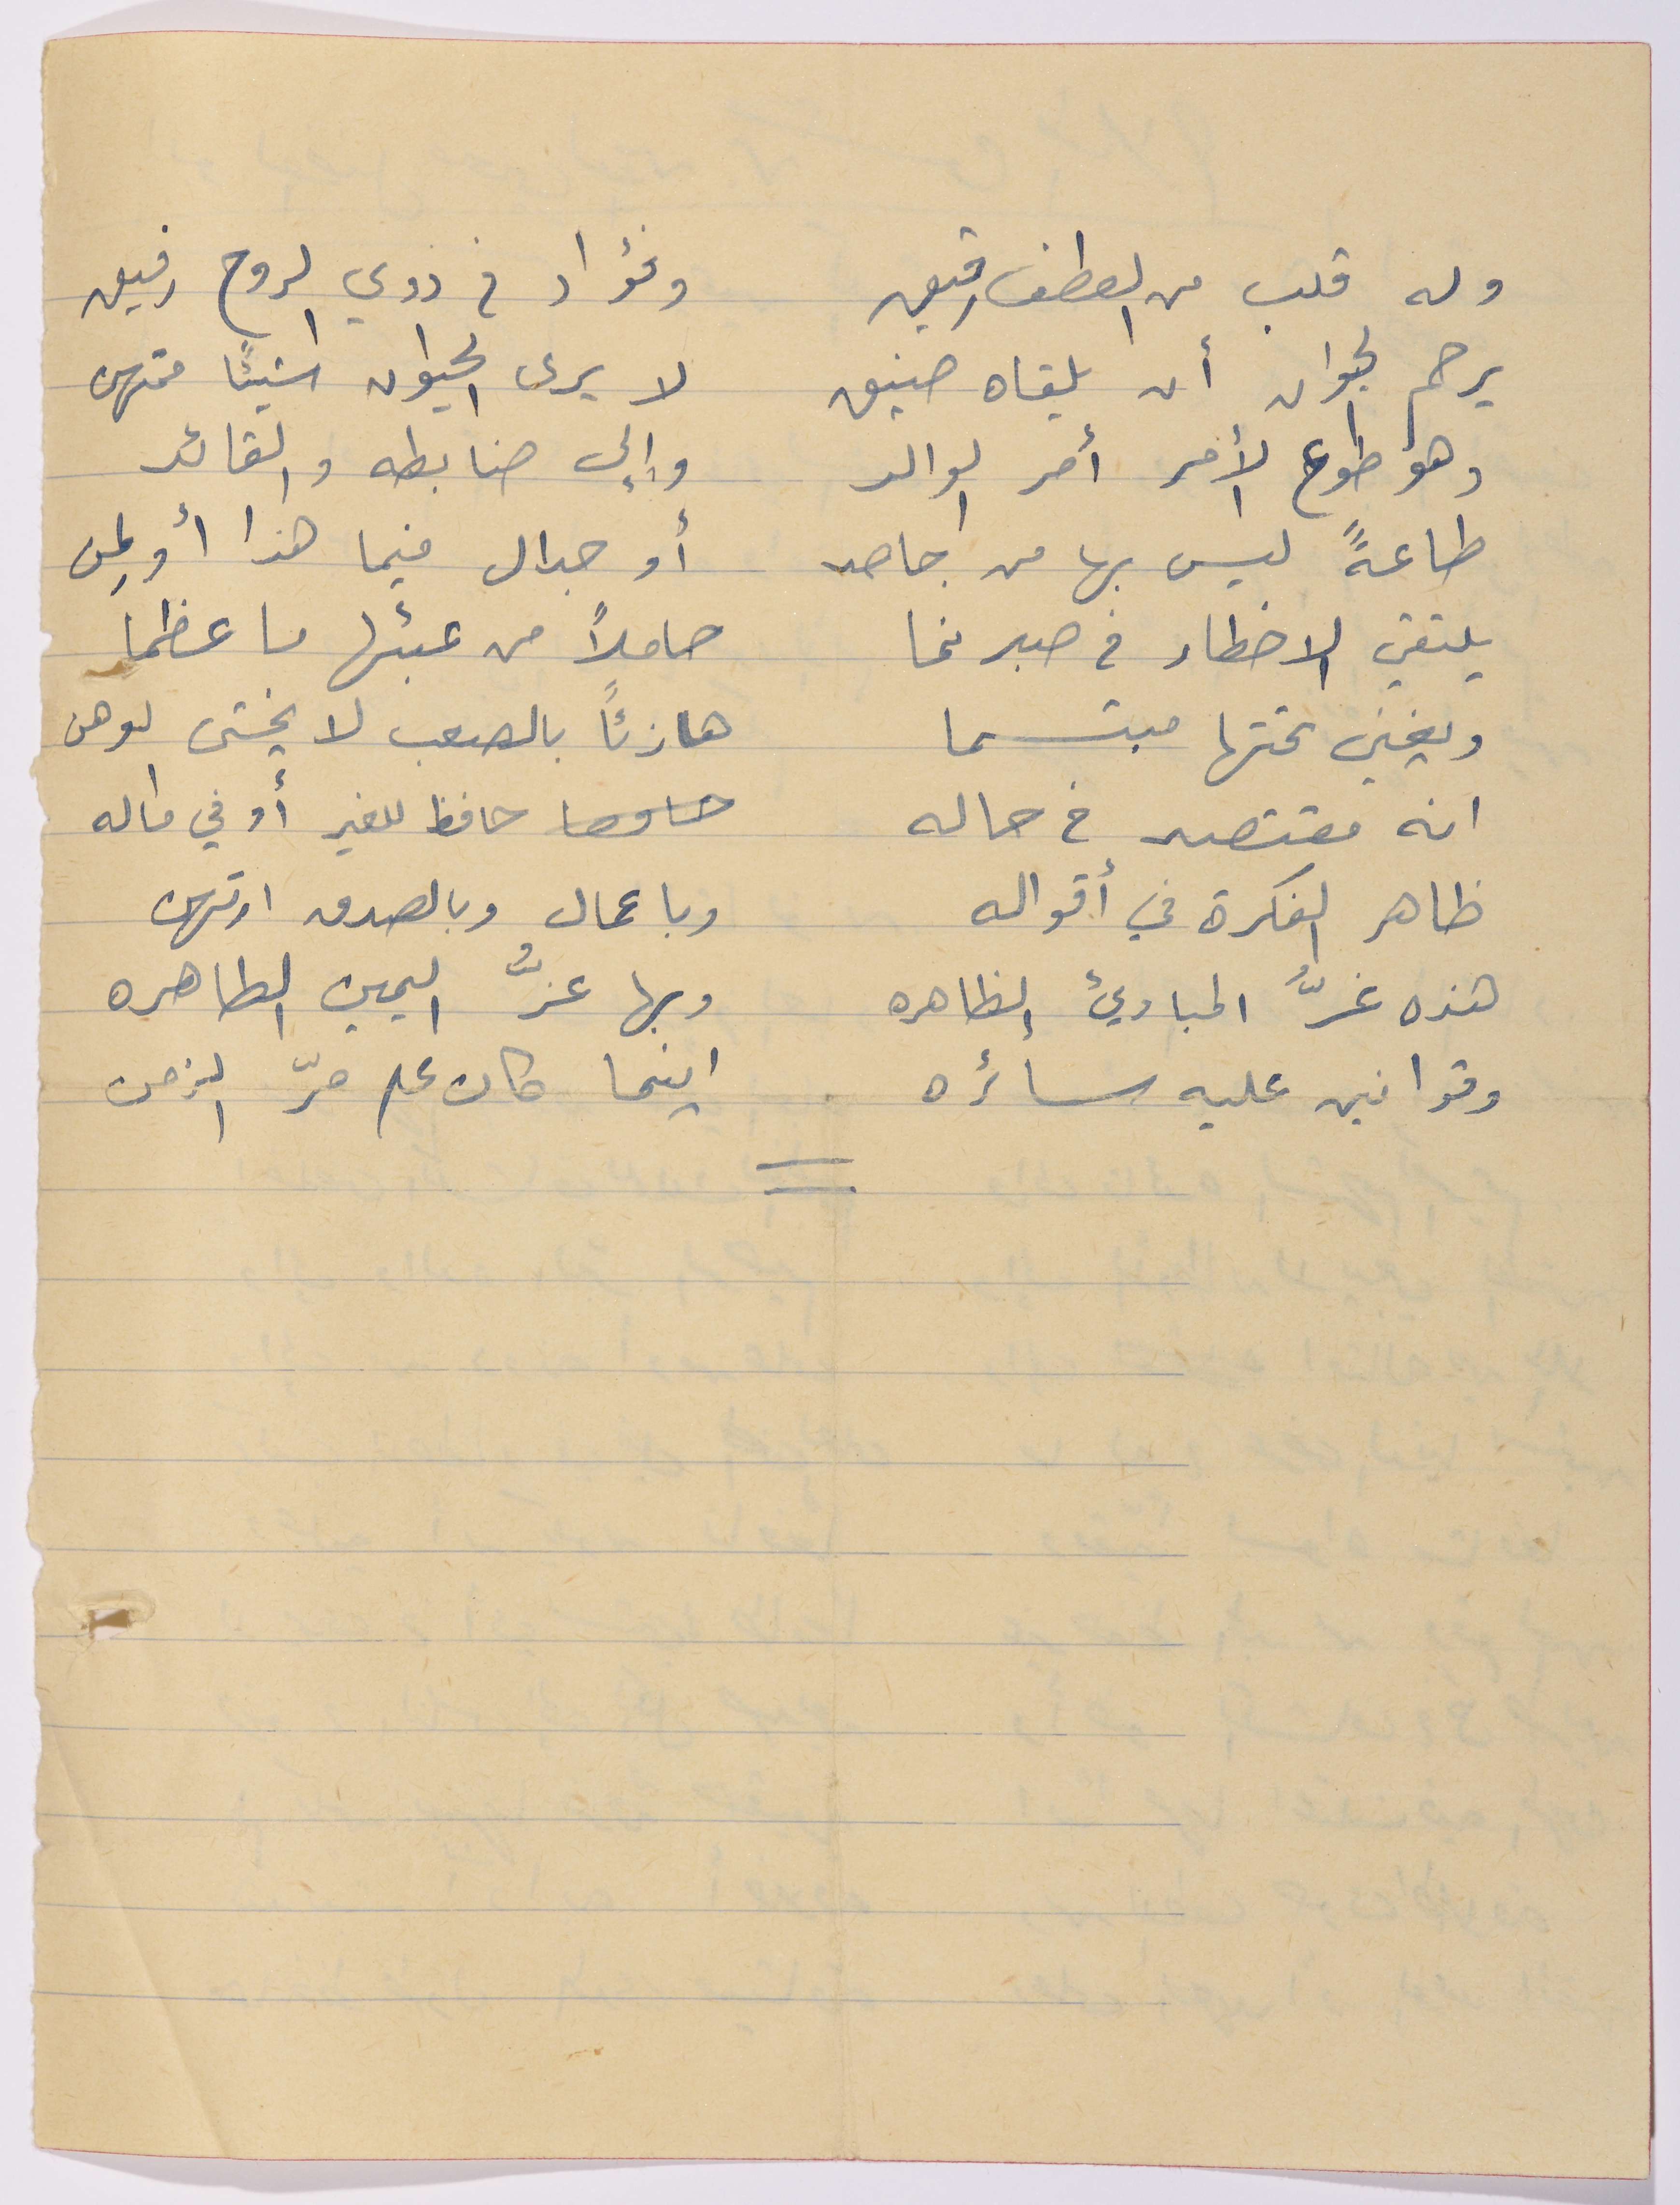 وله قلب من العطف رقيق وفؤاد في ذوي الروح رفيق
يرحم الحيوان أن يلقاه ضيق لا يرى الحيوان شيئًا ممتهن
وهو طوع الأمر أمر الوالد وإلى ضابطه والقائد
طاعةً ليس بها من جاحد أو جدال فيما هذا أو لمن
يلتقي الاخطار في صبر نما حاملاً من عبئها ما عظما
ويغني تحتها مبتسما هازئاً بالصعب لا يخشى الوهن
انه مقتصد في حاله حافظ للغير أو في ماله
ظاهر الفكرة في أقواله وباعمال وبالصدق ارتهن
هذه غرُّ المبادئ الظاهره وبها عزُّ اليمين الطاهره
وقوانين عليه سائره اينما كان على مرّ الزمن